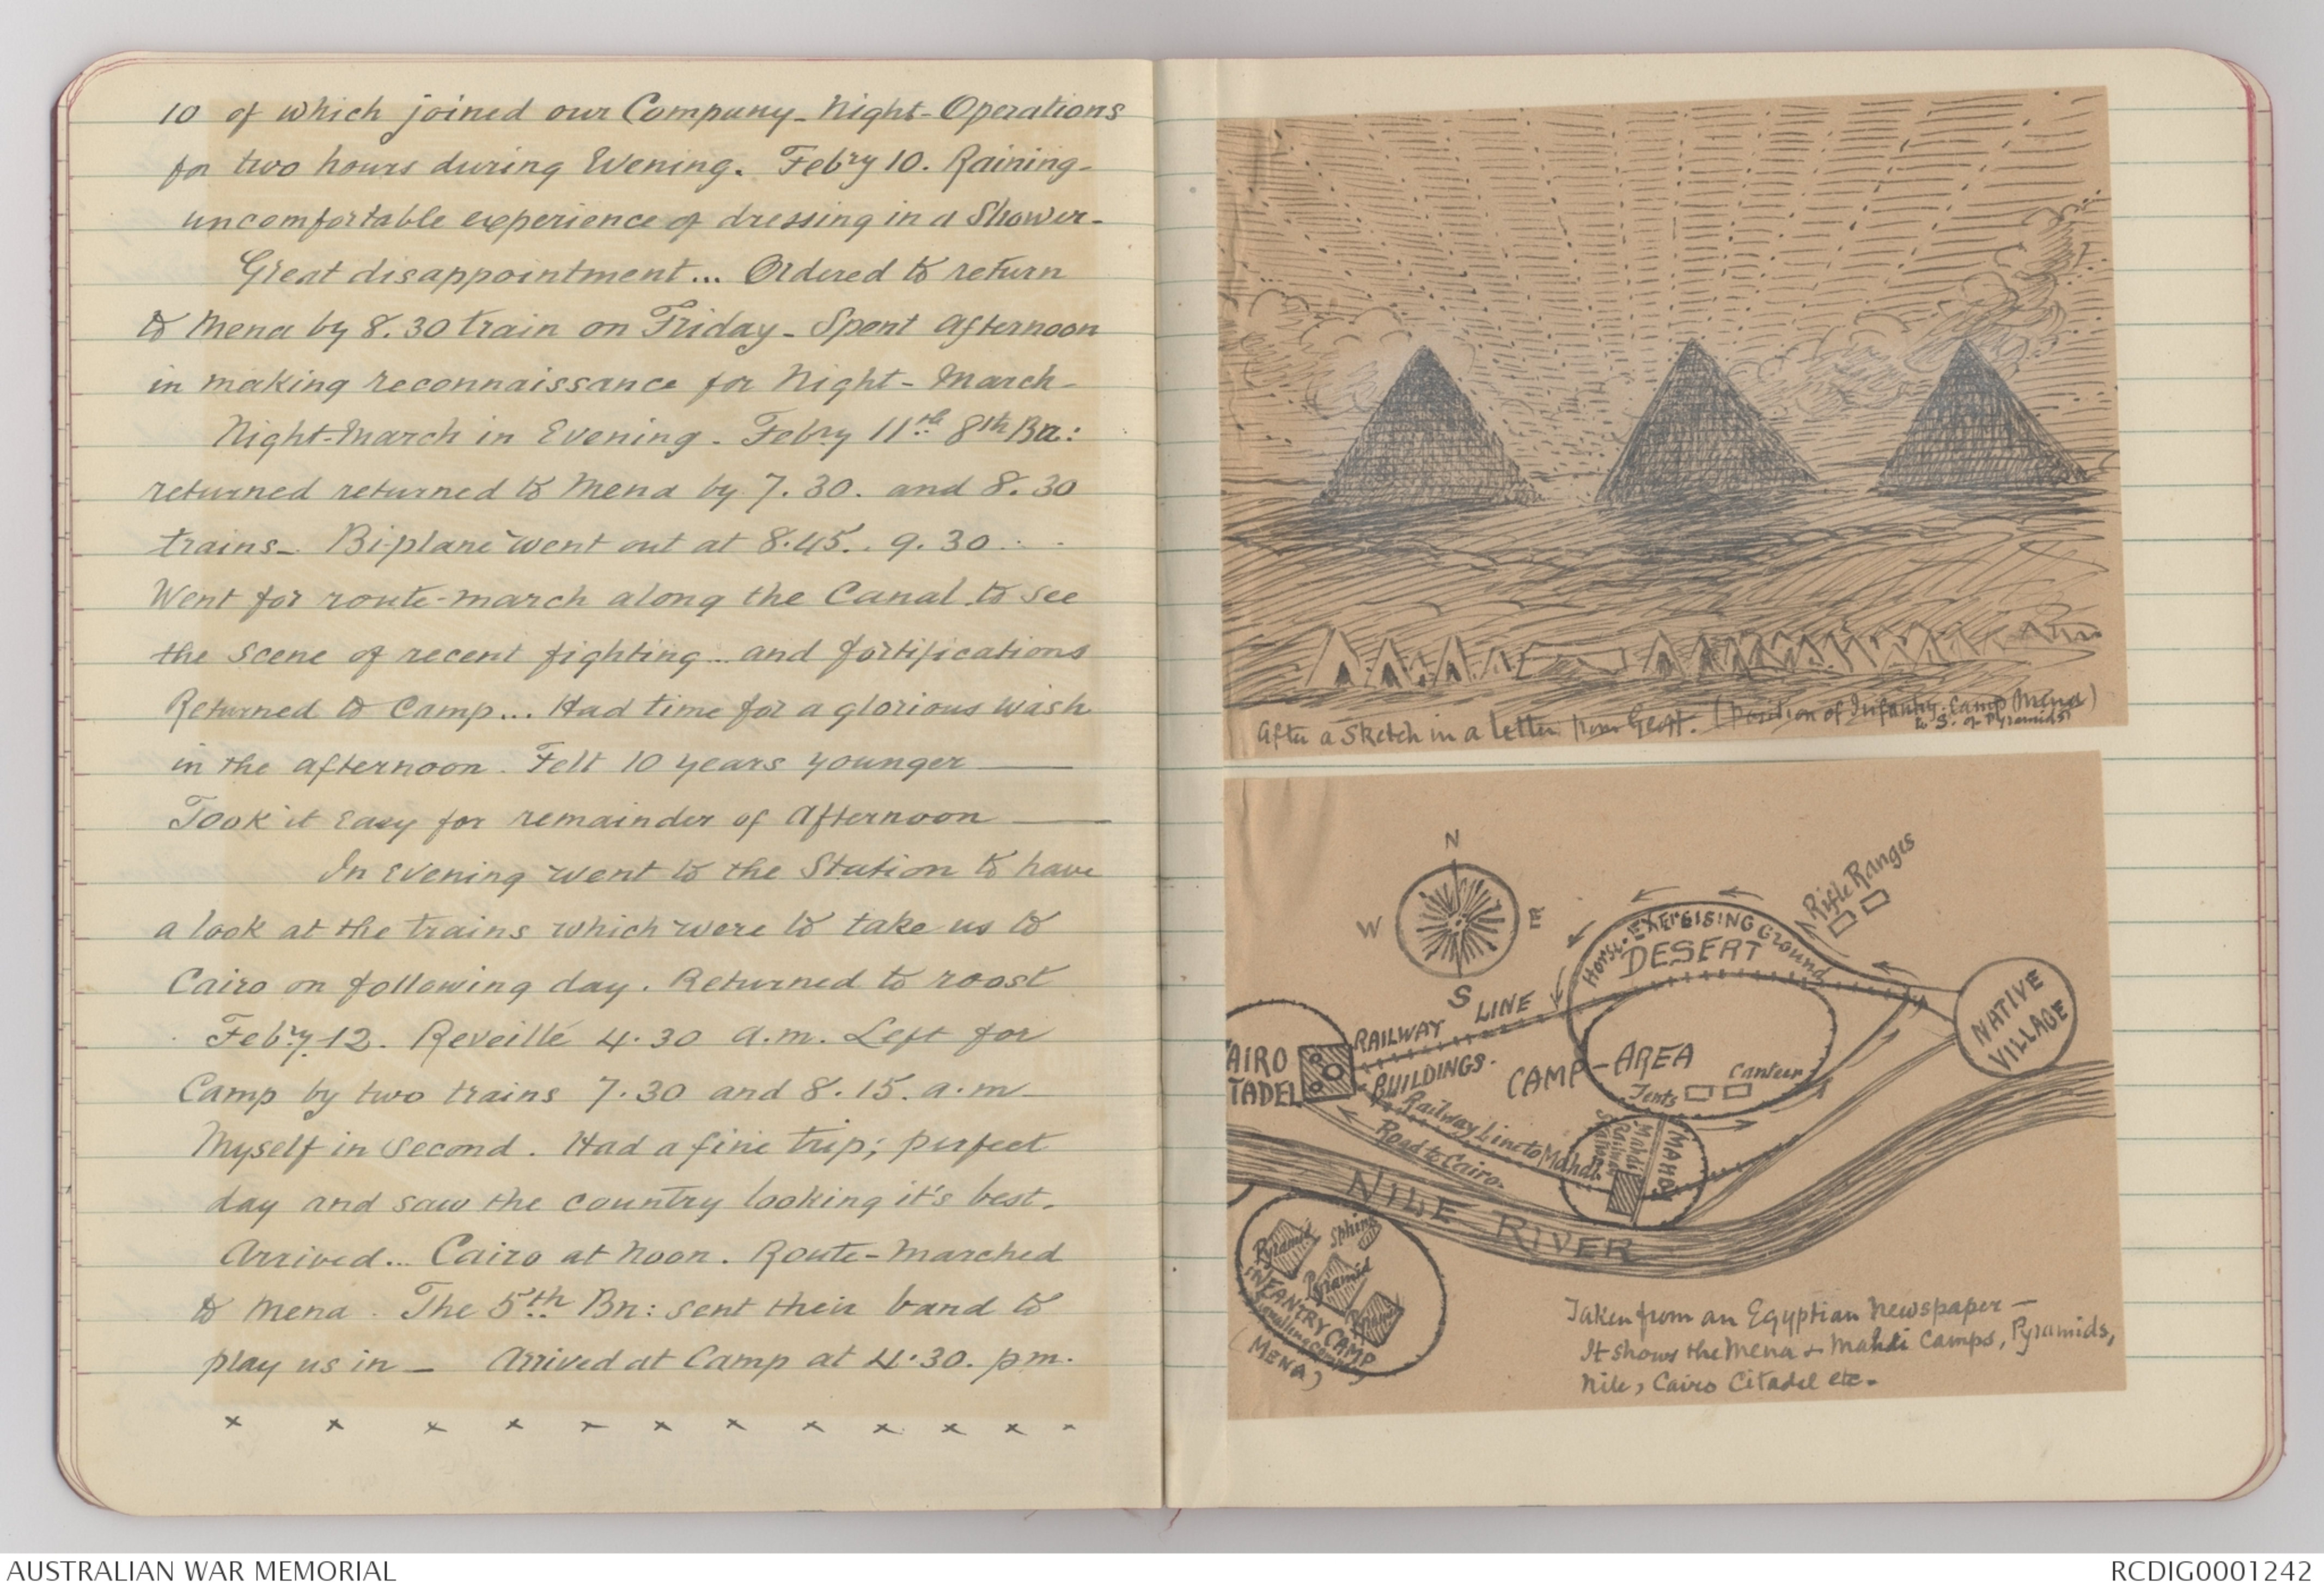 10 of which joined our Company - Night-Operations
for two hours during Evening. Feb'ry 10. Raining -
uncomfortable experience of dressing in a Shower -
Great disappointment... Ordered to return
to Mena by 8.30 train on Friday - Spent afternoon
in making reconnaissance for Night-March -
Night-March in Evening - Feb'ry 11th 8th Bn:
returned returned to Mena by 7.30. and 8.30
trains - Bi-plane went out at 8.45. . 9.30 . .
Went for route-march along the Canal to see
the scene of recent fighting .. and fortifications
Returned to Camp... Had time for a glorious wash
in the afternoon. Felt 10 years younger ——
Took it Easy for remainder of afternoon ——
In Evening went to the Station to have
a look at the trains which were to take us to
Cairo on following day. Returned to roost
Feb'ry 12. Reveille 4.30 a.m. Left for
Camp by two trains 7.30 and 8.15. a.m -
Myself in second. Had a fine trip; perfect
day and saw the country looking it's best.
Arrived... Cairo at Noon. Route-Marched
to Mena. The 5th Bn: sent their band to
play us in - Arrived at Camp at 4.30. pm.
x x x x x x x x x x x x
After a Sketch in a Letter from Geoff. (Position of Infantry Camp (Mena)
to S. of Pyramids)
N
W
E
S
Rifle Ranges
HORSE-EXERCISING Ground
DESERT
RAILWAY LINE
NATIVE
VILLAGE
AIRO
TADEL
BUILDINGS.
CAMP-AREA
Canteen
Tents
Railway Line to Mahdi
Road to Cairo.
Mahdi
Railway
Station
MAHDI
NILE RIVER
Pyramid
Sphinx
Pyramid
Pyramid
INFANTRY CAMP
(MENA)
Taken from an Egyptian Newspaper —
It shows the Mena & Mahdi Camps, Pyramids,
Nile, Cairo Citadel etc -
AUSTRALIAN WAR MEMORIAL
RCDIG0001242